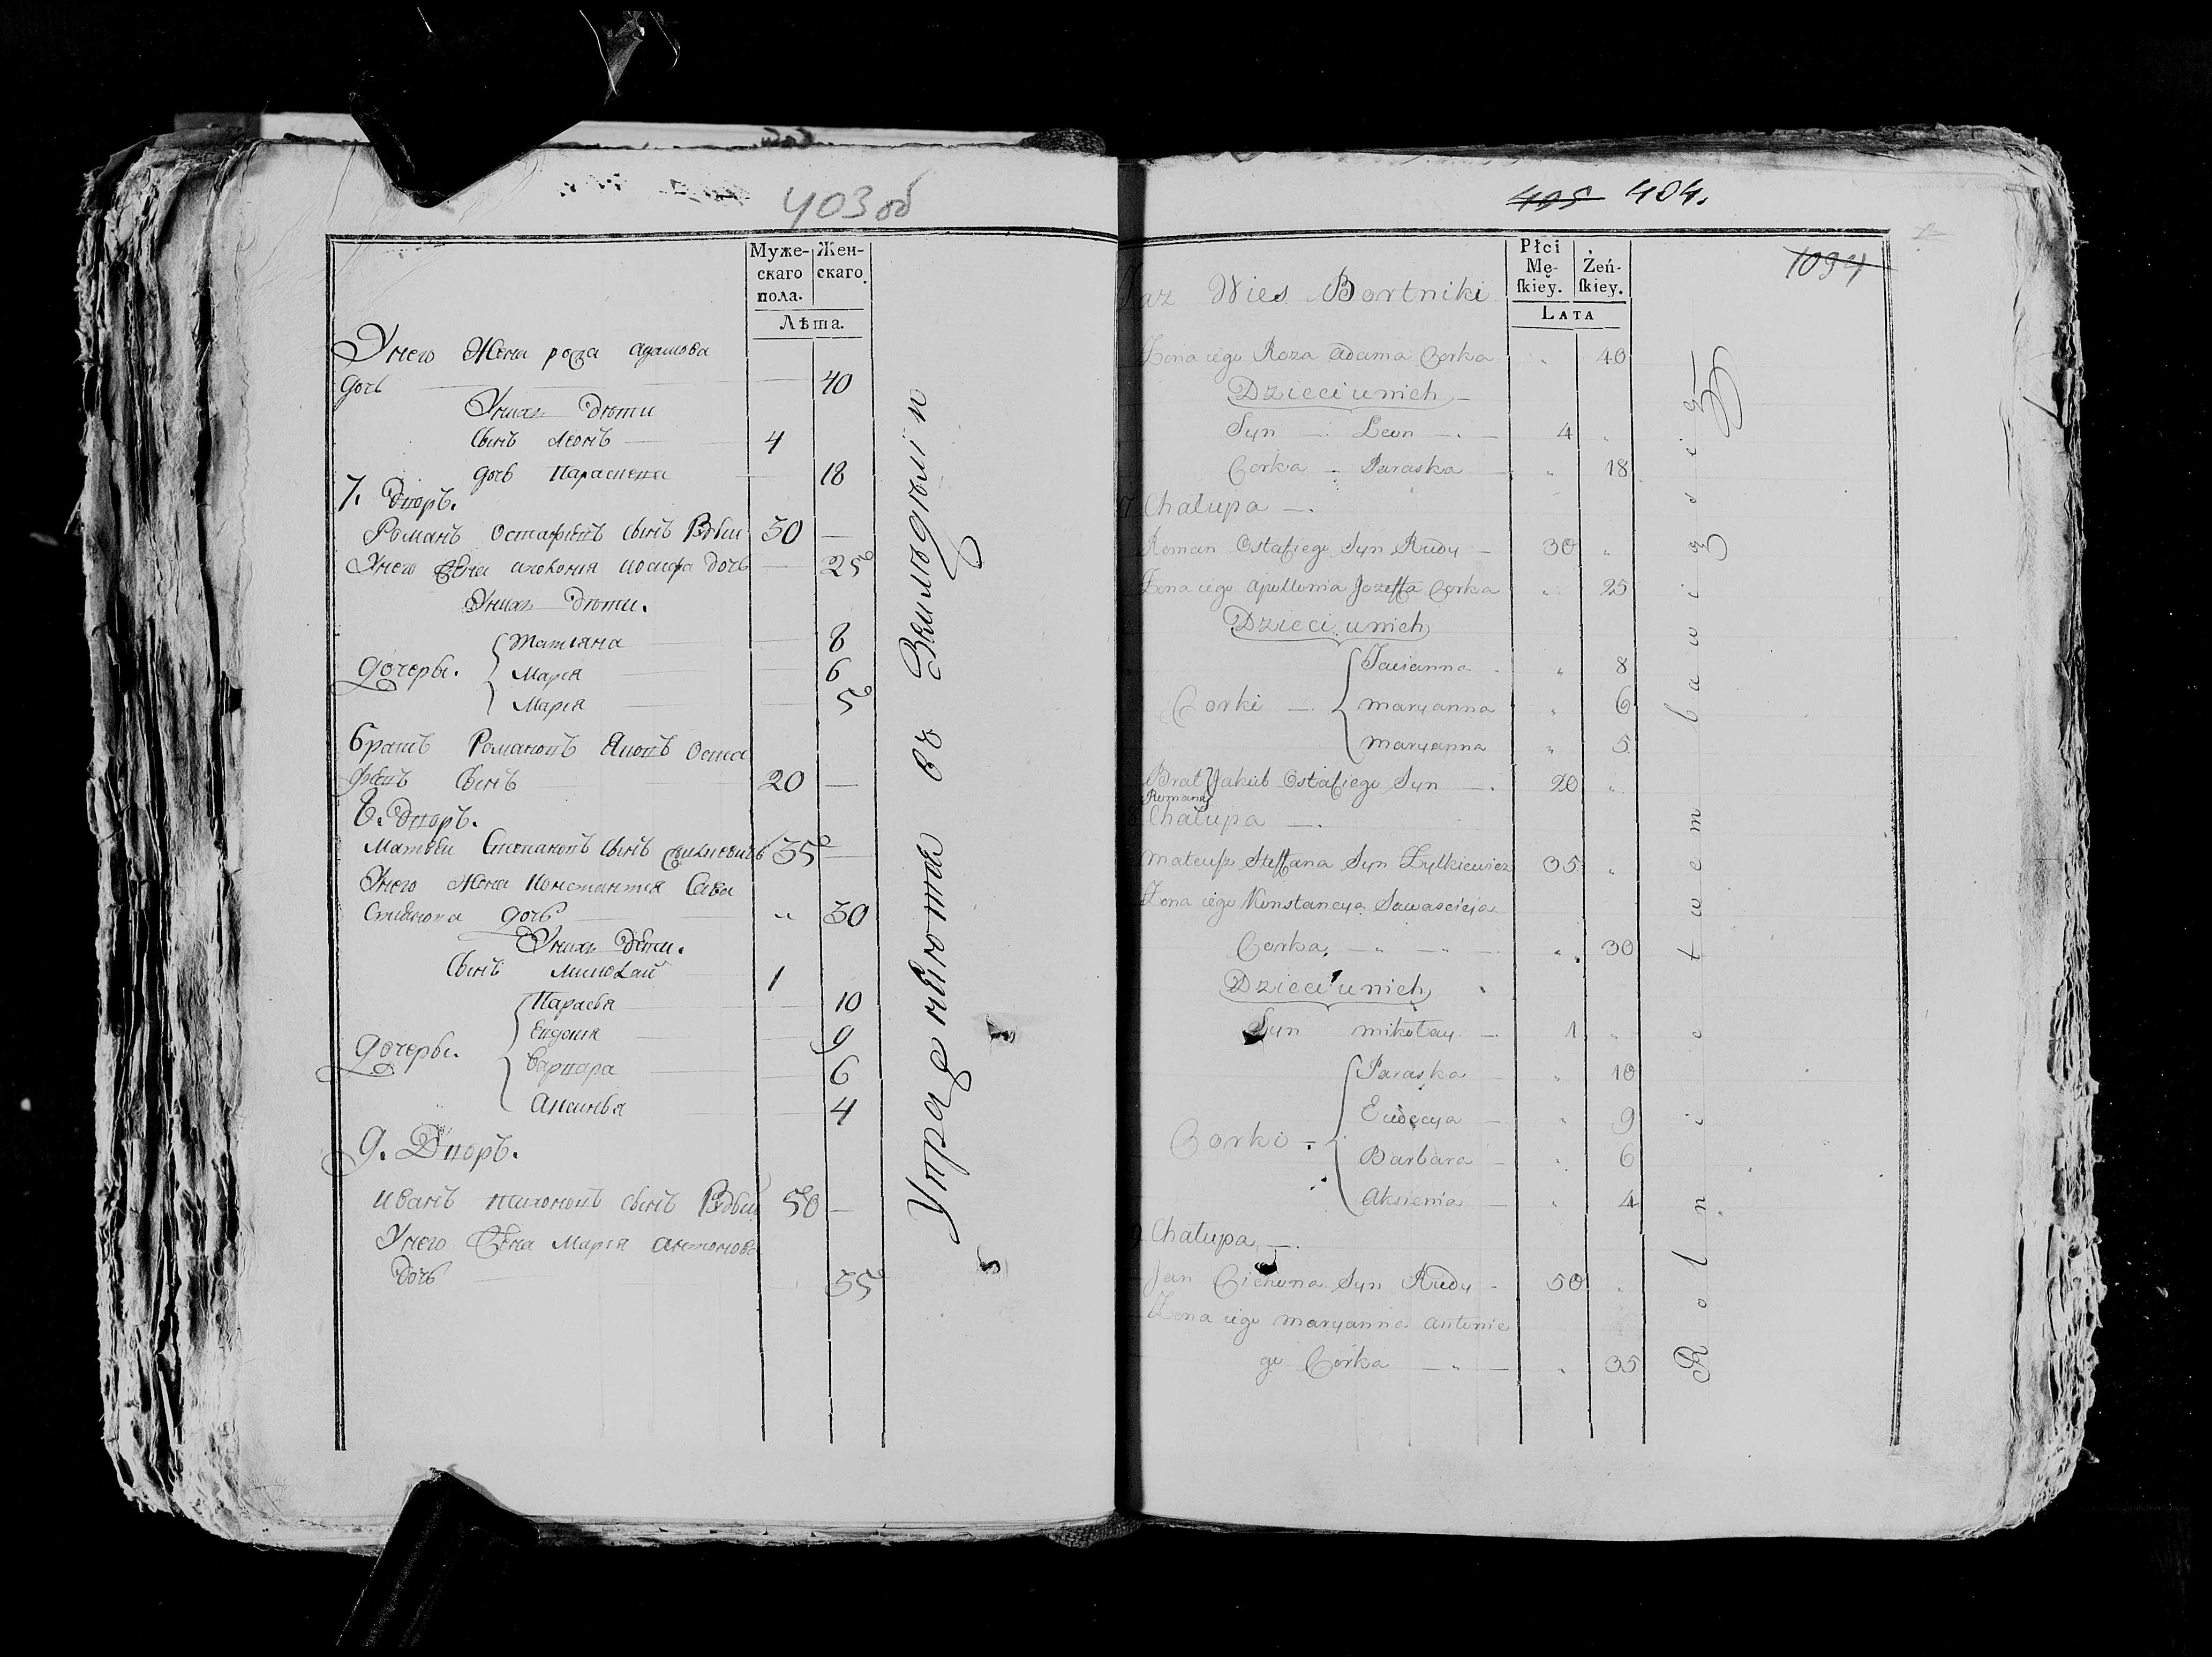 403 об
Муже-
скаго
пола.
Жен-
скаго.
Лѣта.
Унего Жена роза адамова
дочь 40
Унихъ Дѣти
Сынъ Леонъ 4
дочь Параскева 18
7. Дворъ.
Романъ Остафіевъ Сынъ Рудый 50
Унего Жена аполонія иосифа дочь 25
Унихъ Дѣти.
Татіяна 8
дочеры. Марія 6
Марія 5
братъ Романовъ Яковъ Оста
фіевъ Сынъ 20
8. Дворъ.
Матвѣй Степановъ Сынъ 35
Унего Жена Константія Сава
стіянова дочь 30
Унихъ Дѣти.
Сынъ Миколай 1
Парасья 10
Евдокія 9
дочеры.
Варвара 6
Аксинья 4
9. Дворъ.
Иванъ тихоновъ Сынъ Рудый 50
Унего Жена Марія антонова
Дочь 55
Упражняются въ Земледѣліи
405 404.
1094
Płci
Mę-
skiey.
Żeń-
skiey.
LATA
Taz Wies Bortniki
Zona iego Roza Adama Corka 40
Dzieci u nich
Syn Leon 4
Corka Paraska 18
7 Chalupa
Roman Ostafiego Syn Rudy 30
Zona iego Apollonia Jozeffa Corka 25
Dzieci u nich
Tacianna 8
Corki maryanna 6
maryanna 5
Brat Jakub Ostafiego Syn 20
Romana
8 Chalupa
Mateusz Steffana Syn Zylkiewicz 35
Zona iego Konstancya Sawascieja
Corka 30
Dzieci u nich
Syn mikołay 1
Paraska 10
Eudocya 9
Corki
Barbara 6
Aksienia 4
9 Chalupa
Jan Cichona Syn Rudy 50
Zona iego maryanna antonie
go Corka 35
Rolnictwem bawią się